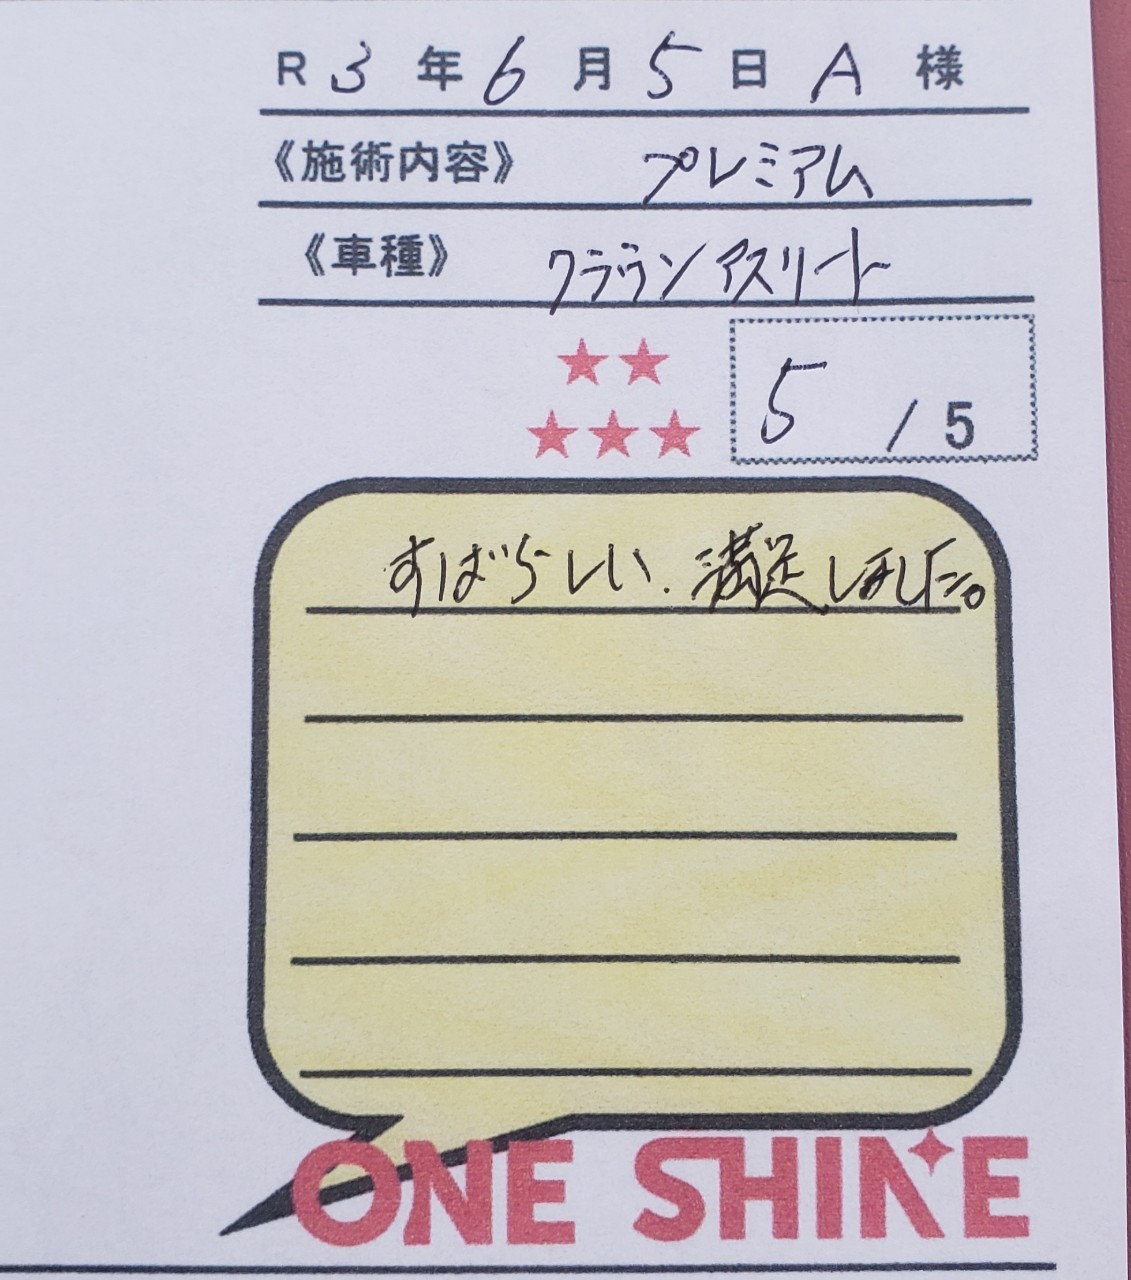 R 3 年 6 月 5 日 A 様
《施術内容》 プレミアム
《車種》 クラウンアスリート
★★
★★★
5 / 5
すばらしい、満足しました。
ONE SHINE